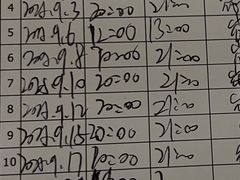 4 2018.9.3 20:00 21:00
5 2018.9.6 12:00 13:00
6 2018.9.8 20:00 21:00
7 2018.9.10 20:00 21:00
8 2018.9.12 20:00 21:00
9 2018.9.15 20:00 21:00
10 2018.9.17 20:00 21:00